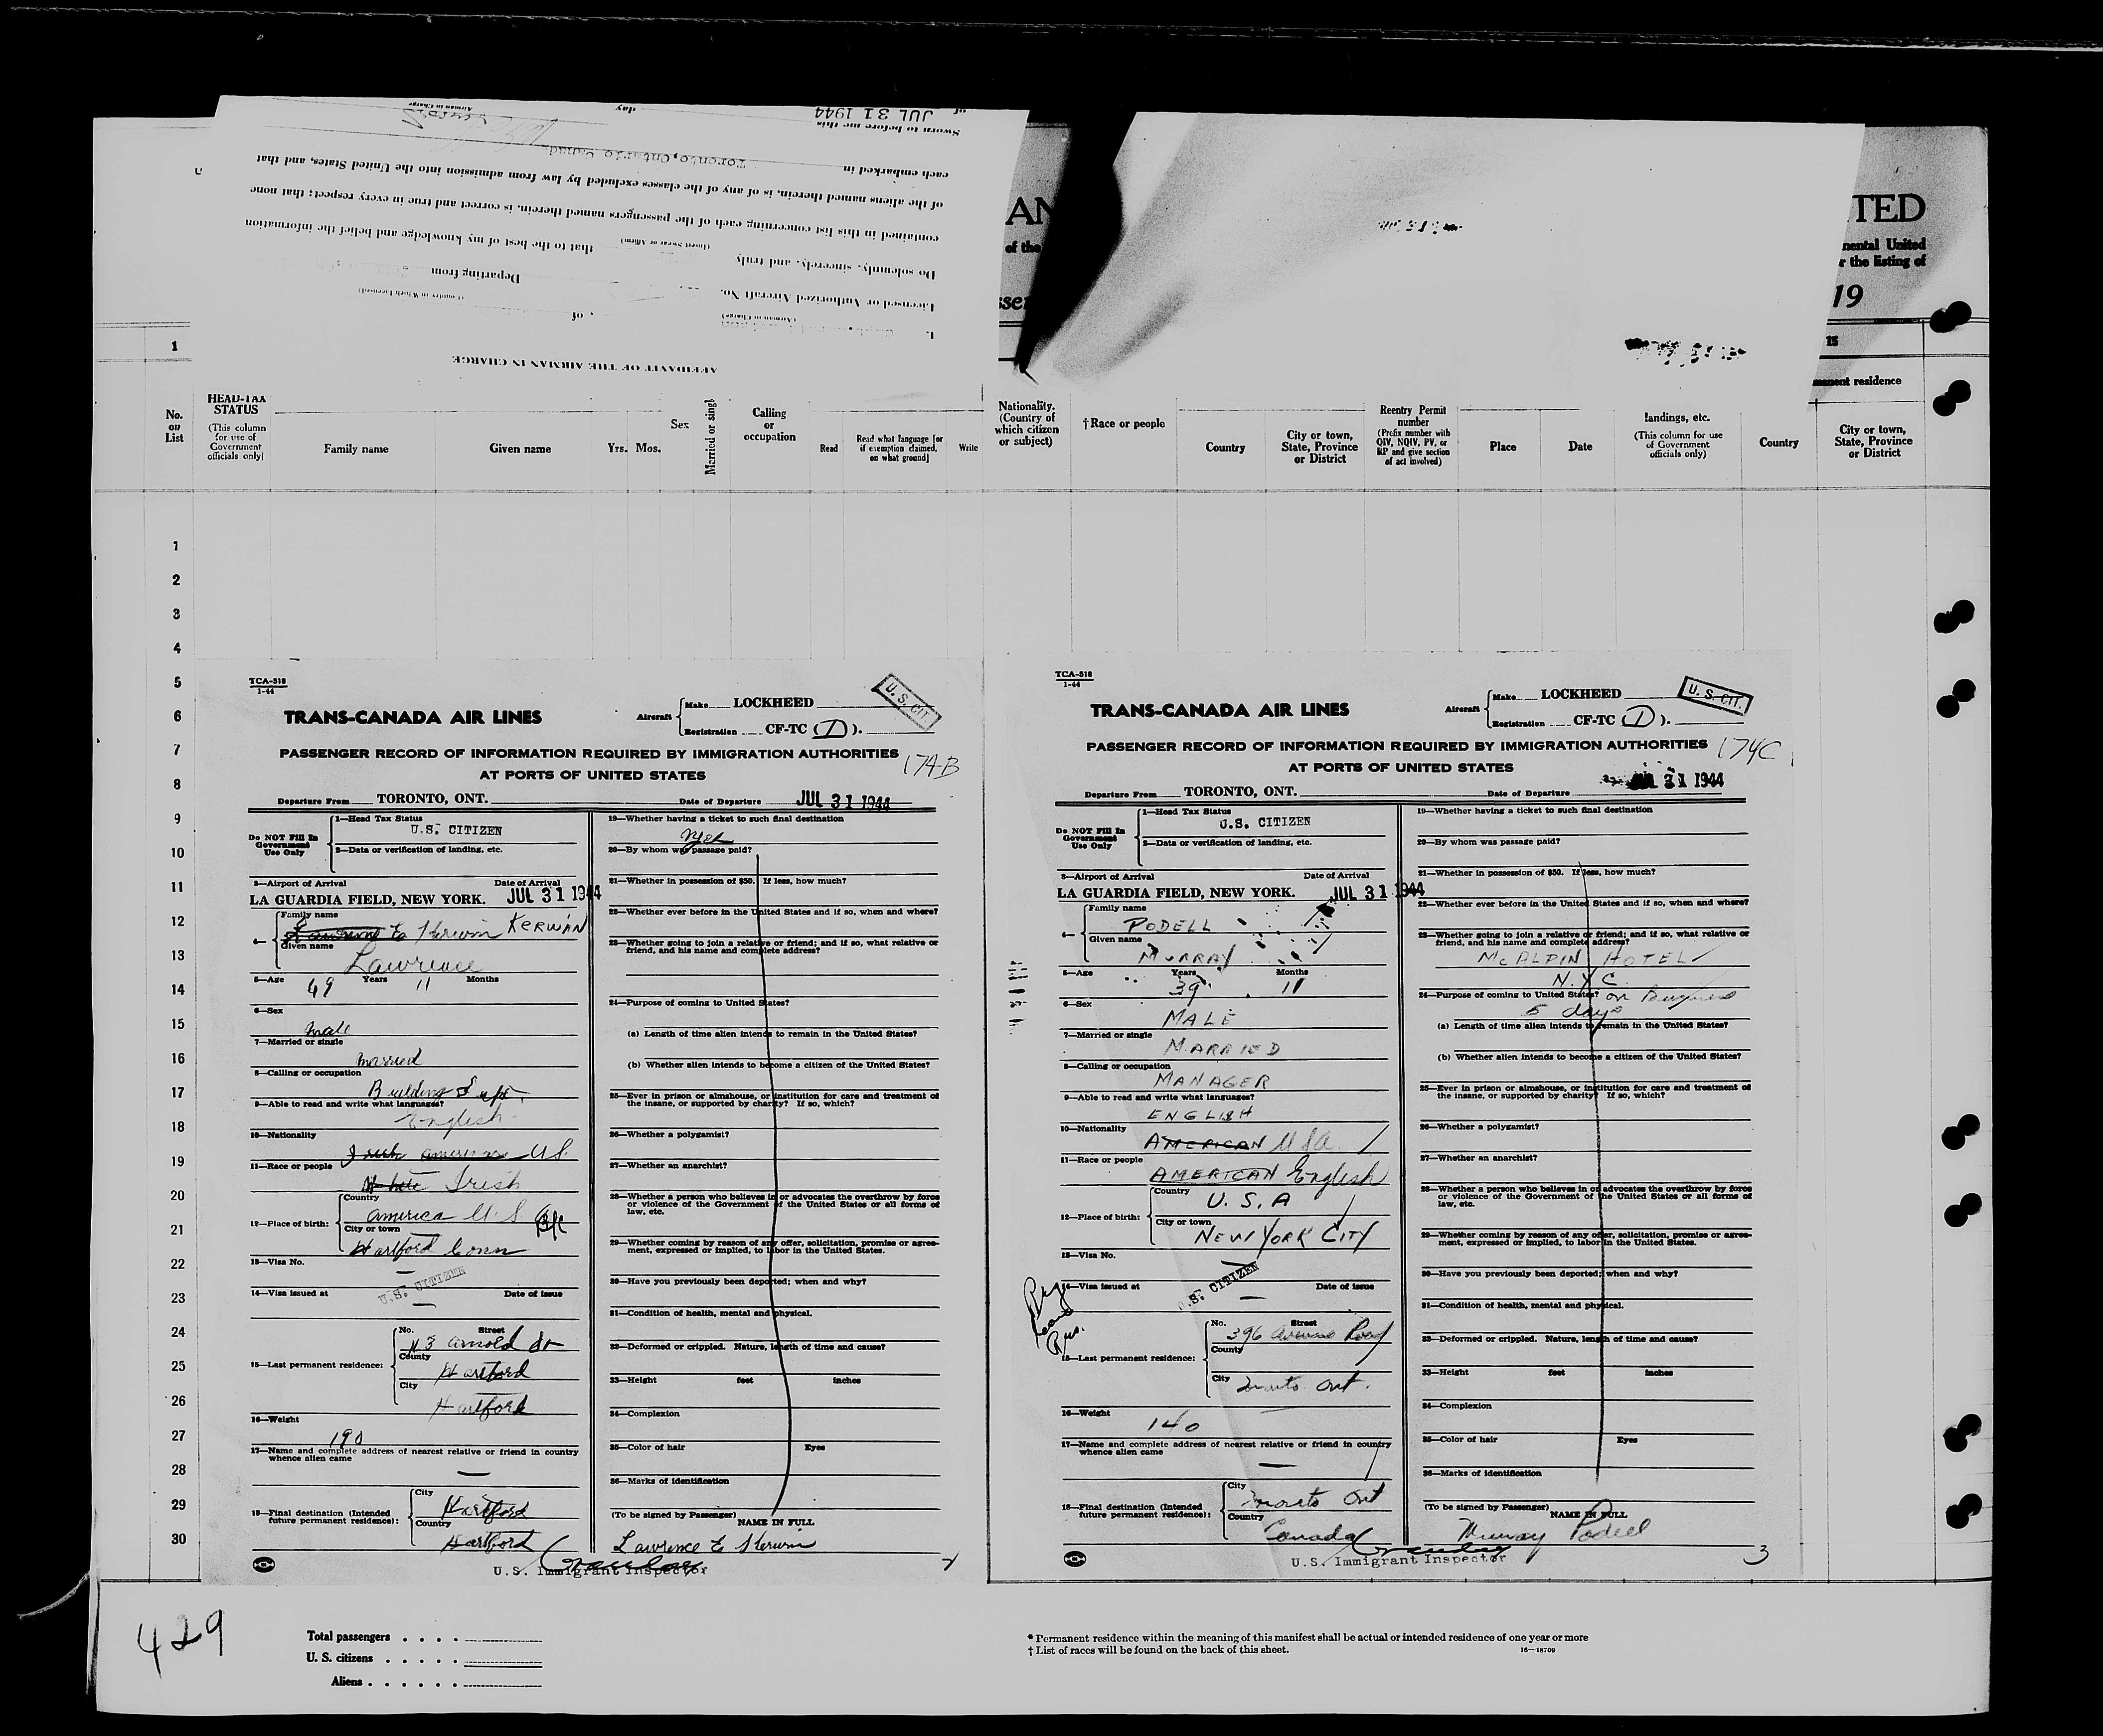 AFFIDAVIT OF THE AIRMAN IN CHARGE
I, (Airman in Charge) , of
(Country in Which Licensed)
Licensed or Authorized Aircraft No.
Departing from
Do solemnly, sincerely, and truly (Insert Swear or Affirm) that to the best of my knowledge and belief the information
contained in this list concerning each of the passengers named therein, is correct and true in every respect; that none
of the aliens named therein, is of any of the classes excluded by law from admission into the United States, and that
each embarked in Toronto, Ontario Canad
Sworn to before me this day
of JUL 31 1944
Airman in Charge
AN
TED
of the
nental United
r the listing of
sse
19
1
15
manent residence
No. on List
HEAD-TAX STATUS
(This column for use of Government officials only)
Family name
Given name
Yrs. Mos.
Sex
Married or singl
Calling or occupation
Read
Read what language [or if exemption claimed, on what ground]
Write
Nationality. (Country of which citizen or subject)
†Race or people
Country
City or town, State, Province or District
Reentry Permit number
(Prefix number with QIV, NQIV, PV, or RP and give section of act involved)
Place
Date
landings, etc.
(This column for use of Government officials only)
Country
City or town, State, Province or District
1
2
3
4
5
6
7
8
9
10
11
12
13
14
15
16
17
18
19
20
21
22
23
24
25
26
27
28
29
30
TCA-518
1-44
TRANS-CANADA AIR LINES
Aircraft
Make LOCKHEED
Registration CF-TC ( D ).
U. S. CIT.
PASSENGER RECORD OF INFORMATION REQUIRED BY IMMIGRATION AUTHORITIES
AT PORTS OF UNITED STATES
174-B
Departure From TORONTO, ONT. Date of Departure JUL 31 1944
Do NOT Fill In Government Use Only
1—Head Tax Status
U.S. CITIZEN
2—Data or verification of landing, etc.
3—Airport of Arrival Date of Arrival
LA GUARDIA FIELD, NEW YORK. JUL 31 1944
4—
Family name
Lawrence E Kerwin KERWIN
Given name
Lawrence
5—Age 49 Years 11 Months
6—Sex
male
7—Married or single
married
8—Calling or occupation
Building Supt.
9—Able to read and write what languages?
English
10—Nationality
Irish American U.S.
11—Race or people
White Irish
12—Place of birth:
Country
America U.S.
City or town
Hartford Conn
13—Visa No.
U.S. CITIZEN
14—Visa issued at Date of issue
15—Last permanent residence:
No. Street
43 Arnold St
County
Hartford
City
Hartford
16—Weight
190
17—Name and complete address of nearest relative or friend in country whence alien came
18—Final destination (Intended future permanent residence):
City
Hartford
Country
Hartford
19—Whether having a ticket to such final destination
yes
20—By whom was passage paid?
21—Whether in possession of $50. If less, how much?
22—Whether ever before in the United States and if so, when and where?
23—Whether going to join a relative or friend; and if so, what relative or friend, and his name and complete address?
24—Purpose of coming to United States?
(a) Length of time alien intends to remain in the United States?
(b) Whether alien intends to become a citizen of the United States?
25—Ever in prison or almshouse, or institution for care and treatment of the insane, or supported by charity? If so, which?
26—Whether a polygamist?
27—Whether an anarchist?
28—Whether a person who believes in or advocates the overthrow by force or violence of the Government of the United States or all forms of law, etc.
29—Whether coming by reason of any offer, solicitation, promise or agreement, expressed or implied, to labor in the United States.
30—Have you previously been deported; when and why?
31—Condition of health, mental and physical.
32—Deformed or crippled. Nature, length of time and cause?
33—Height feet inches
34—Complexion
35—Color of hair Eyes
36—Marks of identification
(To be signed by Passenger) NAME IN FULL
Lawrence E Kerwin
U.S. Immigrant Inspector
TCA-518
1-44
TRANS-CANADA AIR LINES
Aircraft
Make LOCKHEED
Registration CF-TC ( D ).
U. S. CIT.
PASSENGER RECORD OF INFORMATION REQUIRED BY IMMIGRATION AUTHORITIES
AT PORTS OF UNITED STATES
174C
Departure From TORONTO, ONT. Date of Departure JUL 31 1944
Do NOT Fill In Government Use Only
1—Head Tax Status
U.S. CITIZEN
2—Data or verification of landing, etc.
3—Airport of Arrival Date of Arrival
LA GUARDIA FIELD, NEW YORK. JUL 31 1944
4—
Family name
PODELL
Given name
MURRAY
5—Age Years Months
39 11
6—Sex
MALE
7—Married or single
MARRIED
8—Calling or occupation
MANAGER
9—Able to read and write what languages?
ENGLISH
10—Nationality
AMERICAN USA
11—Race or people
AMERICAN English
12—Place of birth:
Country
U. S. A
City or town
NEW YORK CITY
13—Visa No.
U.S. CITIZEN
14—Visa issued at Date of issue
15—Last permanent residence:
No. Street
396 Avenue Road
County
City
Toronto Ont.
16—Weight
140
17—Name and complete address of nearest relative or friend in country whence alien came
18—Final destination (Intended future permanent residence):
City
Toronto Ont
Country
Canada
19—Whether having a ticket to such final destination
20—By whom was passage paid?
21—Whether in possession of $50. If less, how much?
22—Whether ever before in the United States and if so, when and where?
23—Whether going to join a relative or friend; and if so, what relative or friend, and his name and complete address?
MCALPIN HOTEL
N.Y.C.
24—Purpose of coming to United States? on Business
5 days
(a) Length of time alien intends to remain in the United States?
(b) Whether alien intends to become a citizen of the United States?
25—Ever in prison or almshouse, or institution for care and treatment of the insane, or supported by charity? If so, which?
26—Whether a polygamist?
27—Whether an anarchist?
28—Whether a person who believes in or advocates the overthrow by force or violence of the Government of the United States or all forms of law, etc.
29—Whether coming by reason of any offer, solicitation, promise or agreement, expressed or implied, to labor in the United States.
30—Have you previously been deported; when and why?
31—Condition of health, mental and physical.
32—Deformed or crippled. Nature, length of time and cause?
33—Height feet inches
34—Complexion
35—Color of hair Eyes
36—Marks of identification
(To be signed by Passenger) NAME IN FULL
Murray Podell
U.S. Immigrant Inspector
3
429
Total passengers
U. S. citizens
Aliens
* Permanent residence within the meaning of this manifest shall be actual or intended residence of one year or more
† List of races will be found on the back of this sheet.
16—18709